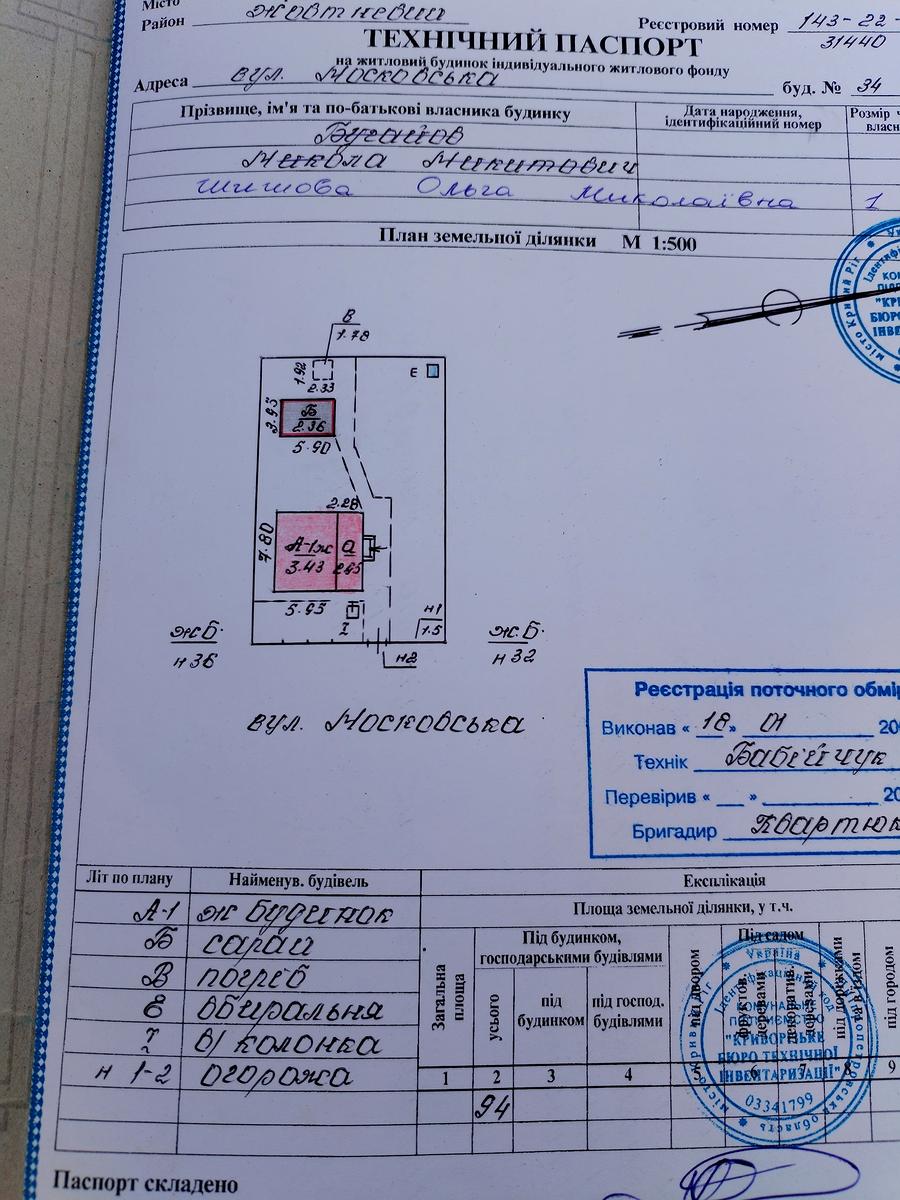 Місто
Район Жовтневий
Реєстровий номер 143-22-
31440
ТЕХНІЧНИЙ ПАСПОРТ
на житловий будинок індивідуального житлового фонду
Адреса вул. Московська буд. № 34
Прізвище, ім'я та по-батькові власника будинку
Дата народження, ідентифікаційний номер
Розмір
власн
Бугайов
Микола Микитович
Шишова Ольга Миколаївна 1
План земельної ділянки М 1:500
В
1.78
1.92
2.33
Е
3.93
Б
2.36
5.90
2.28
7.80
А-1ж
3.43
а
2.85
5.95
н1
1.5
ж.Б.
н 36
н2
ж.Б.
н 32
вул. Московська
Реєстрація поточного обмір
Виконав « 18 » 01 20
Технік Бабійчук
Перевірив « » 20
Бригадир Квартюк
Літ по плану
Найменув. будівель
Експлікація
А-1 ж будинок
Б сарай
В погреб
Е вбиральня
в/ колонка
н 1-2 огорожа
Площа земельної ділянки, у т.ч.
Загальна площа
Під будинком, господарськими будівлями
усього
під будинком
під господ. будівлями
під двором
Під садом
фруктов. деревами
декоратив. деревами
під доріжками
під городом
1 2 3 4 5 6 7 8 9
94
Україна
Ідентифікаційний код
КОМУНАЛЬНЕ
ПІДПРИЄМСТВО
"КРИВОРІЗЬКЕ
БЮРО ТЕХНІЧНОЇ
ІНВЕНТАРИЗАЦІЇ"
03341799
місто Кривий Ріг
Паспорт складено